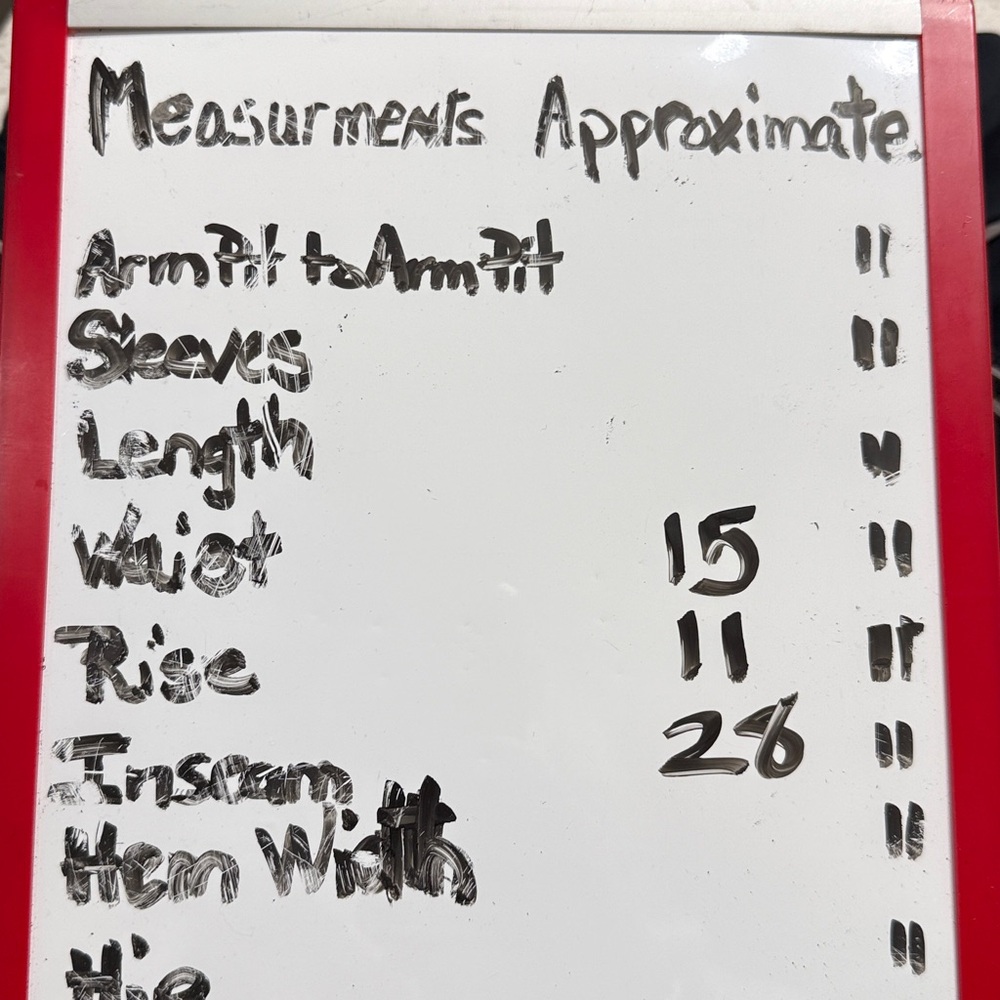 Measurments Approximate.
ArmPit to ArmPit "
Sleeves "
Length "
Waist 15 "
Rise 11 "
Inseam 28 "
Hem Width "
"